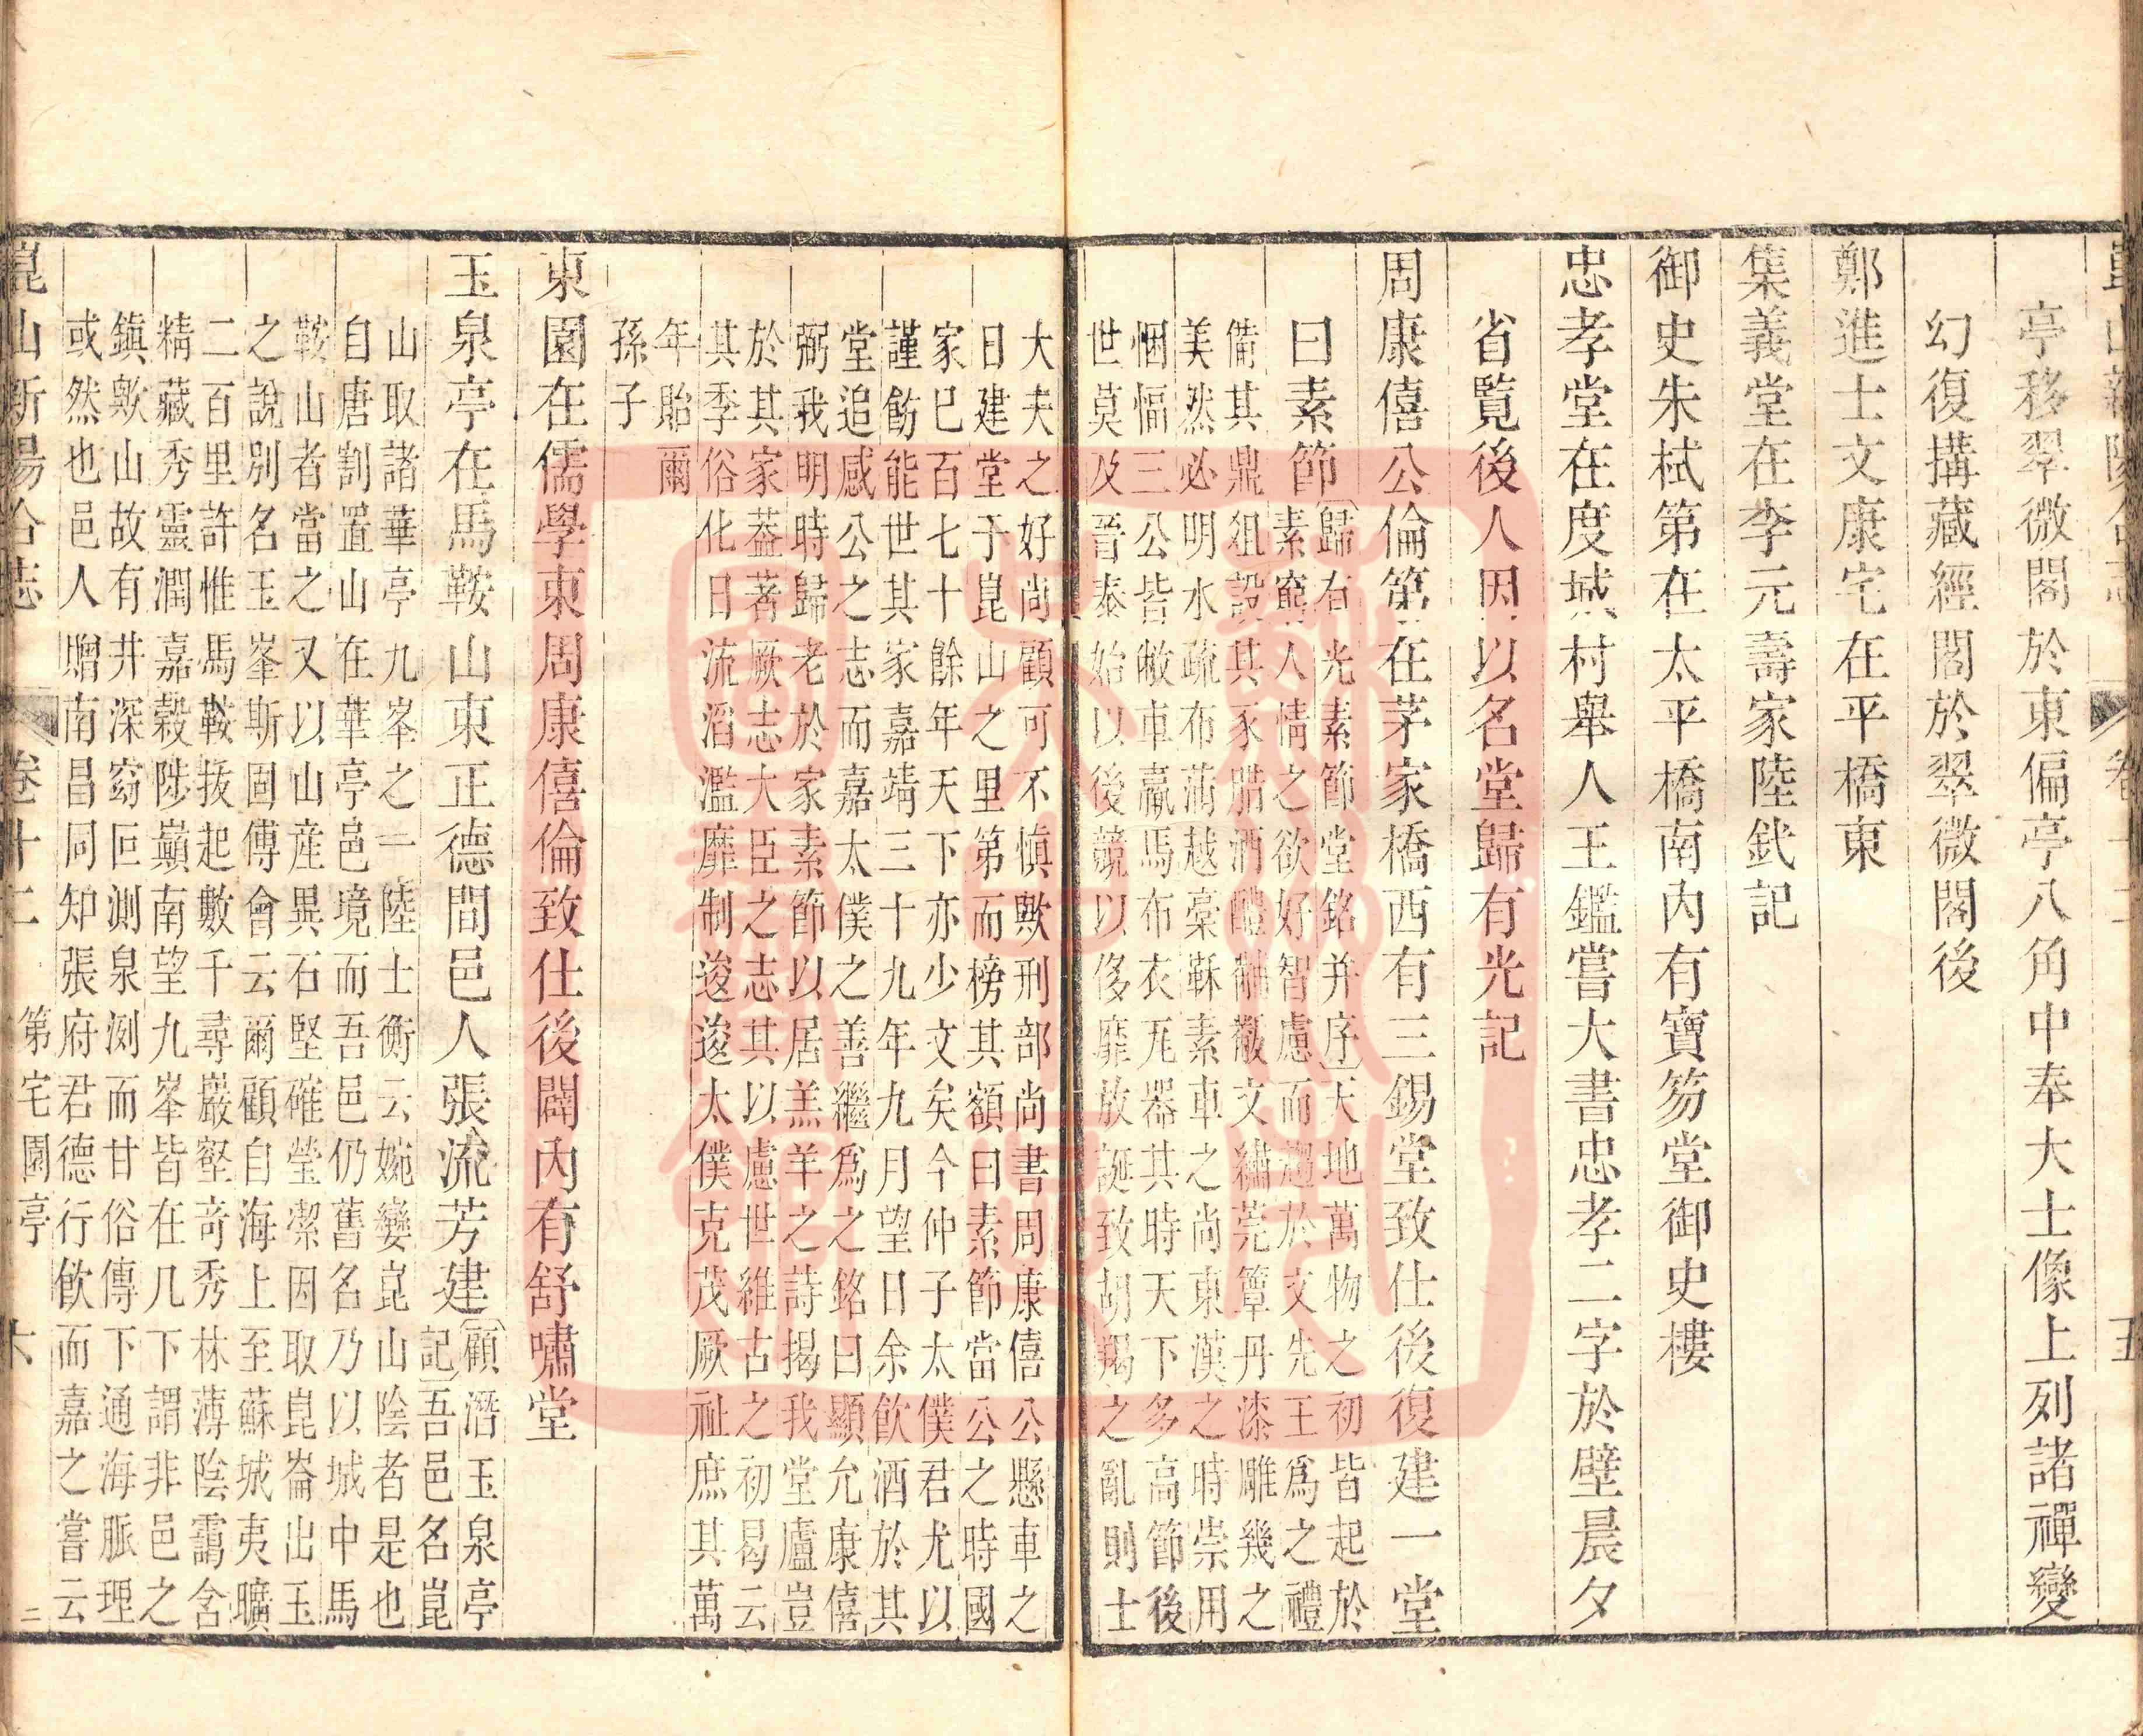 亭移翠微閣於東偏亭八角中奉大士像上列諸禪變
幻復搆藏經閣於翠微閣後
鄭進士文康宅在平橋東
集義堂在李元壽家陸釴記
御史朱栻第在太平橋南內有寶笏堂御史樓
忠孝堂在度城村舉人王鑑嘗大書忠孝二字於壁晨夕
省覽後人因以名堂歸有光記
周康僖公倫第在茅家橋西有三錫堂致仕後復建一堂
曰素節
歸有光素節堂銘并序天地萬物之初皆起於
素窮人情之欲好智慮而趨於文先王為之禮
備其鼎俎設其豕腊酒醴黼黻文繡莞簟丹漆雕幾之
美然必明水疏布蒲越稾鞂素車之尚東漢之時崇用
悃愊三公皆敝車羸馬布衣瓦器其時天下多高節後
世莫及晉泰始以後競以侈靡放誕致胡羯之亂則士
大夫之好尚顧可不慎歟刑部尚書周康僖公懸車之
日建堂于崑山之里第而榜其額曰素節當公之時國
家巳百七十餘年天下亦少文矣今仲子太僕君尤以
謹飭能世其家嘉靖三十九年九月望日余飲酒於其
堂追感公之志而嘉太僕之善繼爲之銘曰顯允康僖
弼我明時歸老於家素節以居羔羊之詩揭我堂廬豈
於其家葢著厥志大臣之志其以慮世維古之初曷云
其季俗化日流滔濫靡制逡逡太僕克茂厥祉庶其萬
年貽爾
孫子
東園在儒學東周康僖倫致仕後闢內有舒嘯堂
玉泉亭在馬鞍山東正德間邑人張流芳建
顧潛玉泉亭
記吾邑名崑
山取諸華亭九峯之一陸士衡云婉孌崑山陰者是也
自唐割置山在華亭邑境而吾邑仍舊名乃以城中馬
鞍山者當之又以山產異石堅確瑩潔因取崑崙出玉
之說別名玉峯斯固傅會云爾顧自海上至蘇城夷曠
二百里許惟馬鞍拔起數千尋巖壑奇秀林薄陰靄含
精藏秀靈潤嘉穀陟巔南望九峯皆在几下謂非邑之
鎮歟山故有井深窈叵測泉洌而甘俗傳下通海脈理
或然也邑人贈南昌同知張府君德行飲而嘉之嘗云
崑山新陽合志 卷十二 第宅園亭 六